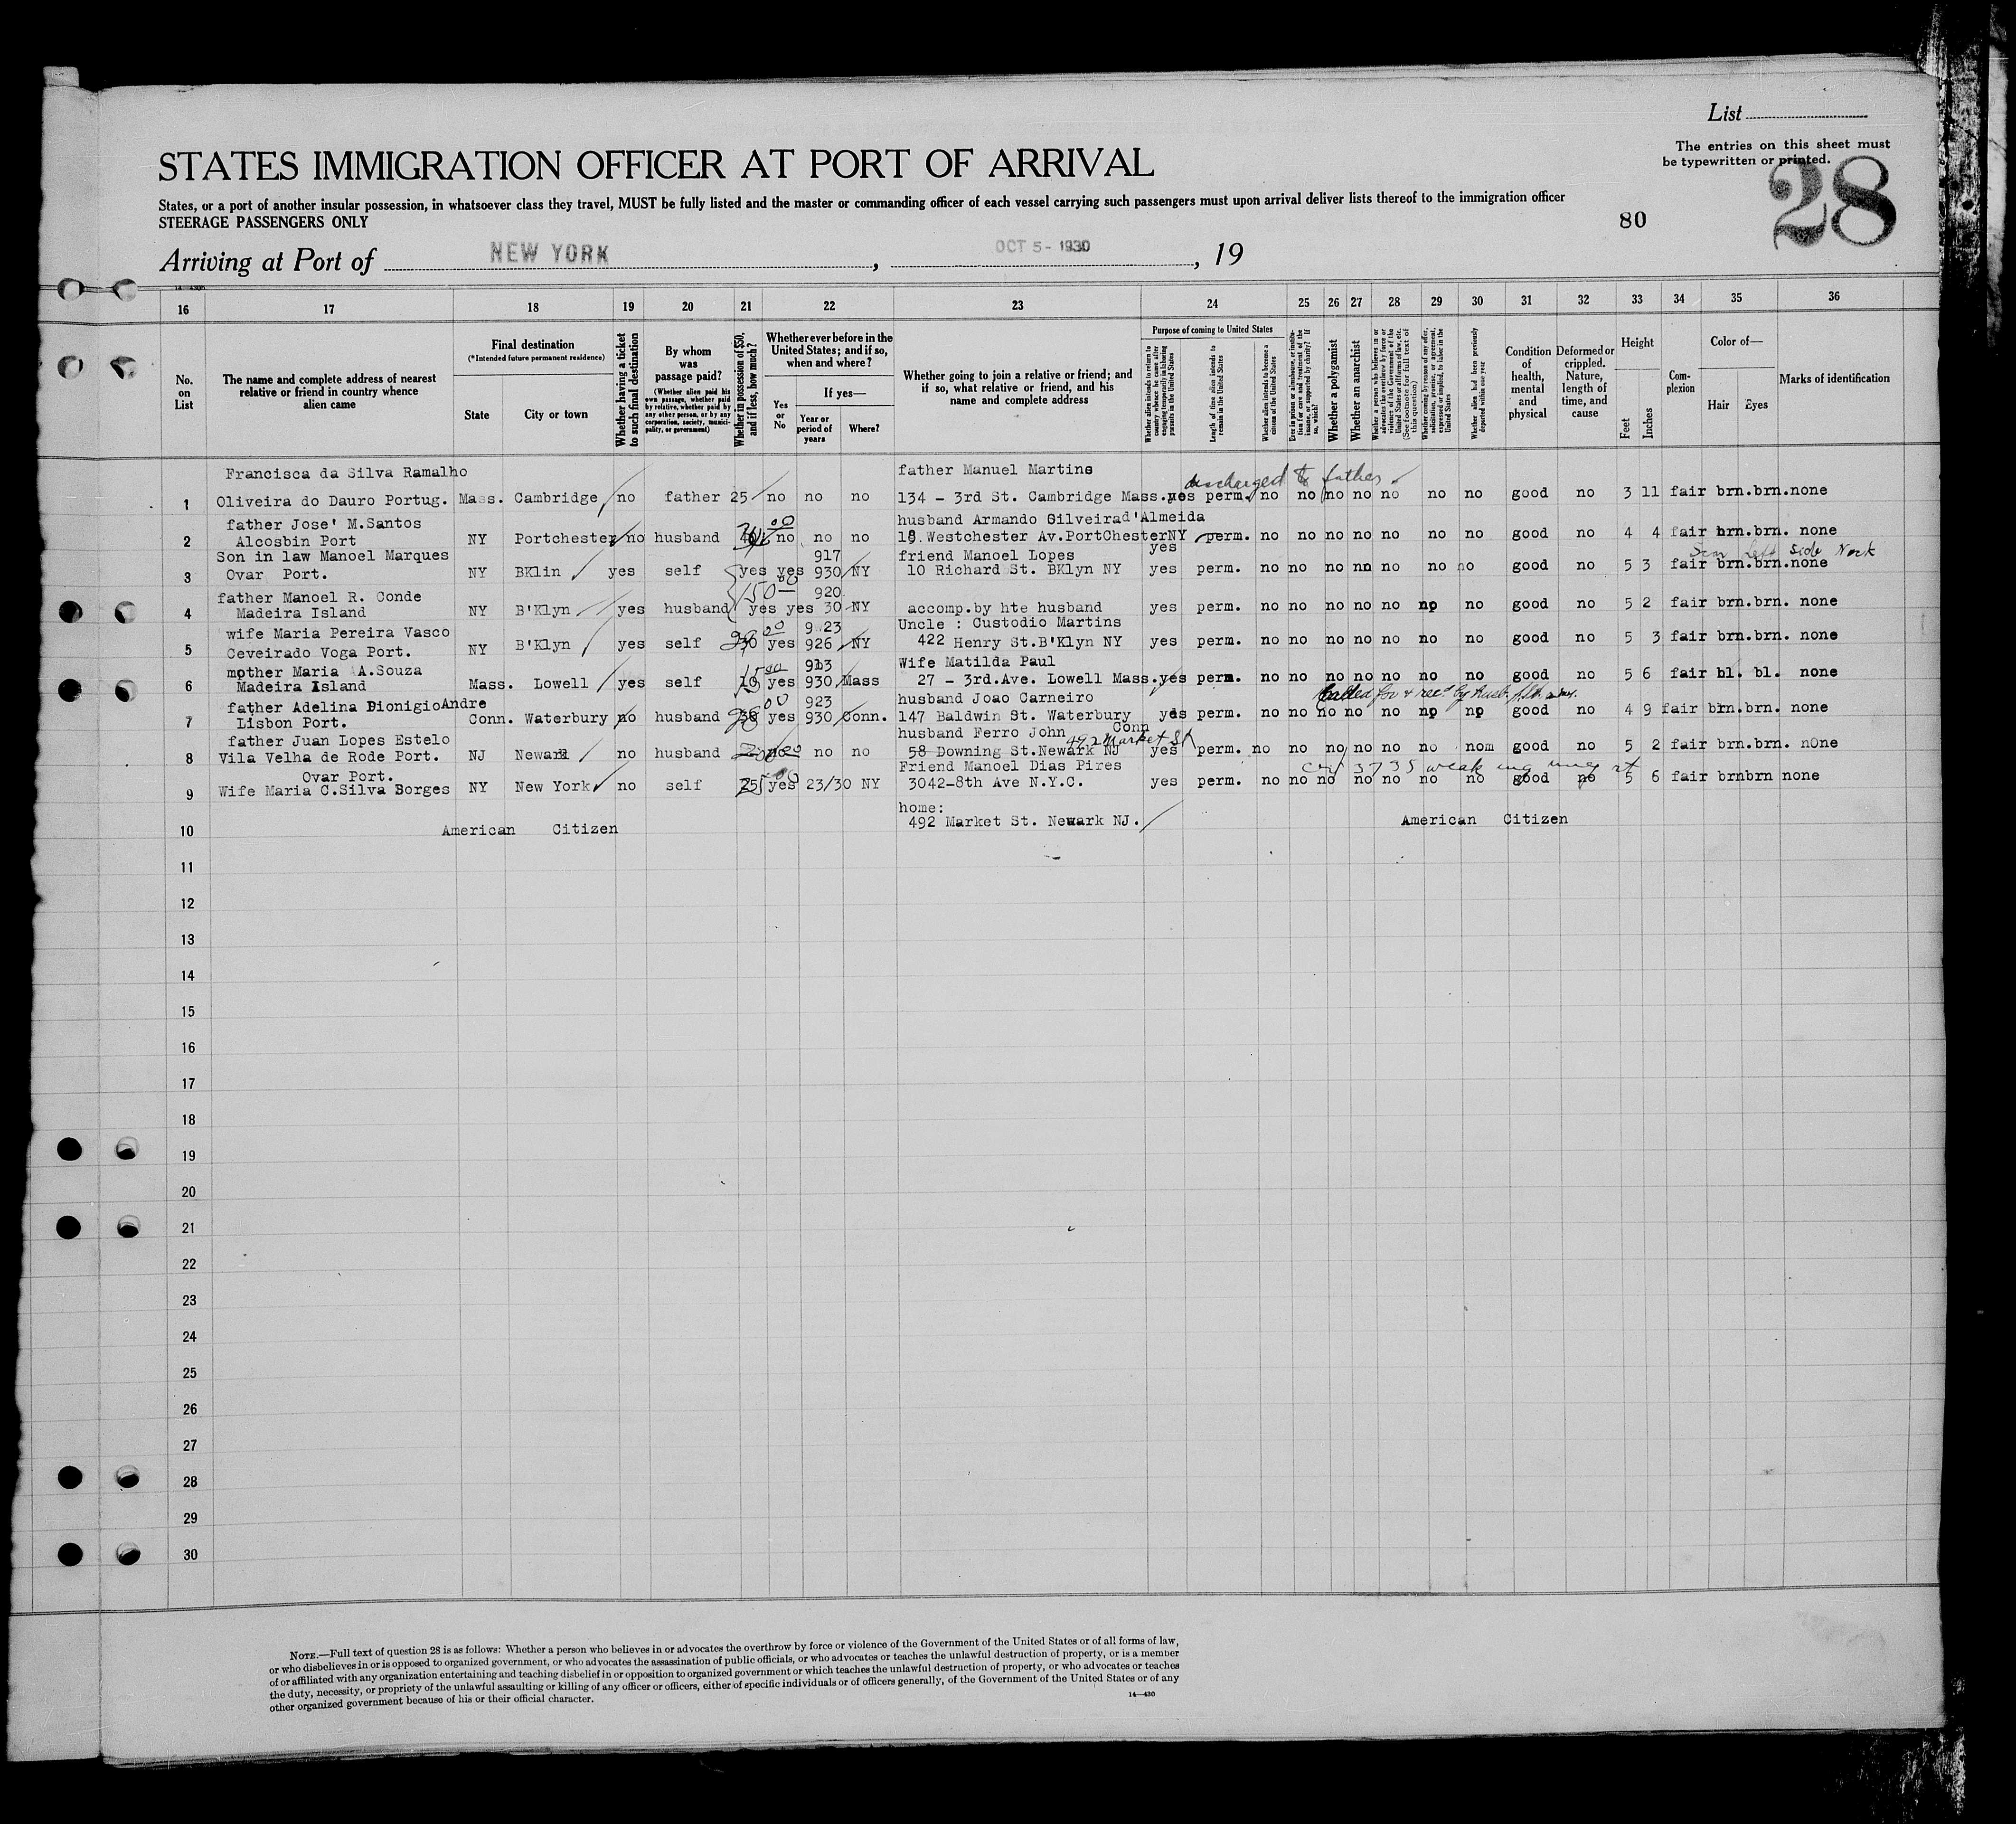 List
The entries on this sheet must
be typewritten or printed.
28
STATES IMMIGRATION OFFICER AT PORT OF ARRIVAL
States, or a port of another insular possession, in whatsoever class they travel, MUST be fully listed and the master or commanding officer of each vessel carrying such passengers must upon arrival deliver lists thereof to the immigration officer
STEERAGE PASSENGERS ONLY
80
Arriving at Port of NEW YORK, OCT 5 - 1930, 19
16 17 18 19 20 21 22 23 24 25 26 27 28 29 30 31 32 33 34 35 36
No. on List
The name and complete address of nearest relative or friend in country whence alien came
Final destination
(*Intended future permanent residence)
State City or town
Whether having a ticket to such final destination
By whom was passage paid?
(Whether alien paid his own passage, whether paid by relative, whether paid by any other person, or by any corporation, society, municipality, or government)
Whether in possession of $50, and if less, how much?
Whether ever before in the United States; and if so, when and where?
Yes or No
If yes—
Year or period of years
Where?
Whether going to join a relative or friend; and if so, what relative or friend, and his name and complete address
Purpose of coming to United States
Whether alien intends to return to country whence he came after engaging temporarily in laboring pursuits in the United States
Length of time alien intends to remain in the United States
Whether alien intends to become a citizen of the United States
Ever in prison or almshouse, or institution for care and treatment of the insane, or supported by charity? If so, which?
Whether a polygamist
Whether an anarchist
Whether a person who believes in or advocates the overthrow by force or violence of the Government of the United States or all forms of law, etc. (See footnote for full text of this question)
Whether coming by reason of any offer, solicitation, promise, or agreement, expressed or implied, to labor in the United States
Whether alien had been previously deported within one year
Condition of health, mental and physical
Deformed or crippled. Nature, length of time, and cause
Height
Feet Inches
Complexion
Color of—
Hair Eyes
Marks of identification
Francisca da Silva Ramalho father Manuel Martins discharged to father
1 Oliveira do Dauro Portug. Mass. Cambridge no father 25 no no no 134 - 3rd St. Cambridge Mass. yes perm. no no no no no no no good no 3 11 fair brn. brn. none
father Jose' M.Santos 00 husband Armando Silveirad'Almeida
2 Alcosbin Port NY Portchester no husband no no no 18.Westchester Av.PortChesterNY perm. no no no no no no no good no 4 4 fair brn.brn. none
Son in law Manoel Marques 917 friend Manoel Lopes yes Scar left side Neck
3 Ovar Port. NY BKlin yes self yes yes 930 NY 10 Richard St. BKlyn NY yes perm. no no no nn no no no good no 5 3 fair brn.brn.none
father Manoel R. Conde 150 00 920
4 Madeira Island NY B'Klyn yes husband yes yes 30 NY accomp.by hte husband yes perm. no no no no no no no good no 5 2 fair brn.brn. none
wife Maria Pereira Vasco 00 9 23 Uncle : Custodio Martins
5 Ceveirado Voga Port. NY B'Klyn yes self yes 926 NY 422 Henry St.B'Klyn NY yes perm. no no no no no no no good no 5 3 fair brn.brn. none
mother Maria A.Souza 913 Wife Matilda Paul
6 Madeira Island Mass. Lowell yes self yes 930 Mass 27 - 3rd.Ave. Lowell Mass. yes perm. no no no no no no no good no 5 6 fair bl. bl. none
father Adelina DionigioAndre 00 923 husband Joao Carneiro Called for & rec'd by husb.
7 Lisbon Port. Conn. Waterbury no husband yes 930 Conn. 147 Baldwin St. Waterbury yes perm. no no no no no no no good no 4 9 fair brn.brn. none
Conn
father Juan Lopes Estelo husband Ferro John 492 Market St
8 Vila Velha de Rode Port. NJ Newark no husband no no 58 Downing St.Newark NJ yes perm. no no no no no no nom good no 5 2 fair brn.brn. nOne
Ovar Port. Friend Manoel Dias Pires 3735 weak
9 Wife Maria C.Silva Borges NY New York no self yes 23/30 NY 3042-8th Ave N.Y.C. yes perm. no no no no no no no good no 5 6 fair brnbrn none
home:
10 American Citizen 492 Market St. Newark NJ. American Citizen
11
12
13
14
15
16
17
18
19
20
21
22
23
24
25
26
27
28
29
30
NOTE.—Full text of question 28 is as follows: Whether a person who believes in or advocates the overthrow by force or violence of the Government of the United States or of all forms of law,
or who disbelieves in or is opposed to organized government, or who advocates the assassination of public officials, or who advocates or teaches the unlawful destruction of property, or is a member
of or affiliated with any organization entertaining and teaching disbelief in or opposition to organized government or which teaches the unlawful destruction of property, or who advocates or teaches
the duty, necessity, or propriety of the unlawful assaulting or killing of any officer or officers, either of specific individuals or of officers generally, of the Government of the United States or of any
other organized government because of his or their official character.
14—430